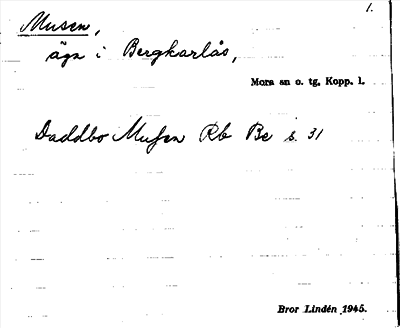 1.
Musen,
äga i Bergkarlås,
Mora sn o. tg, Kopp. l.
Daddbo Musen Rb Bc s. 31
Bror Lindén 1945.